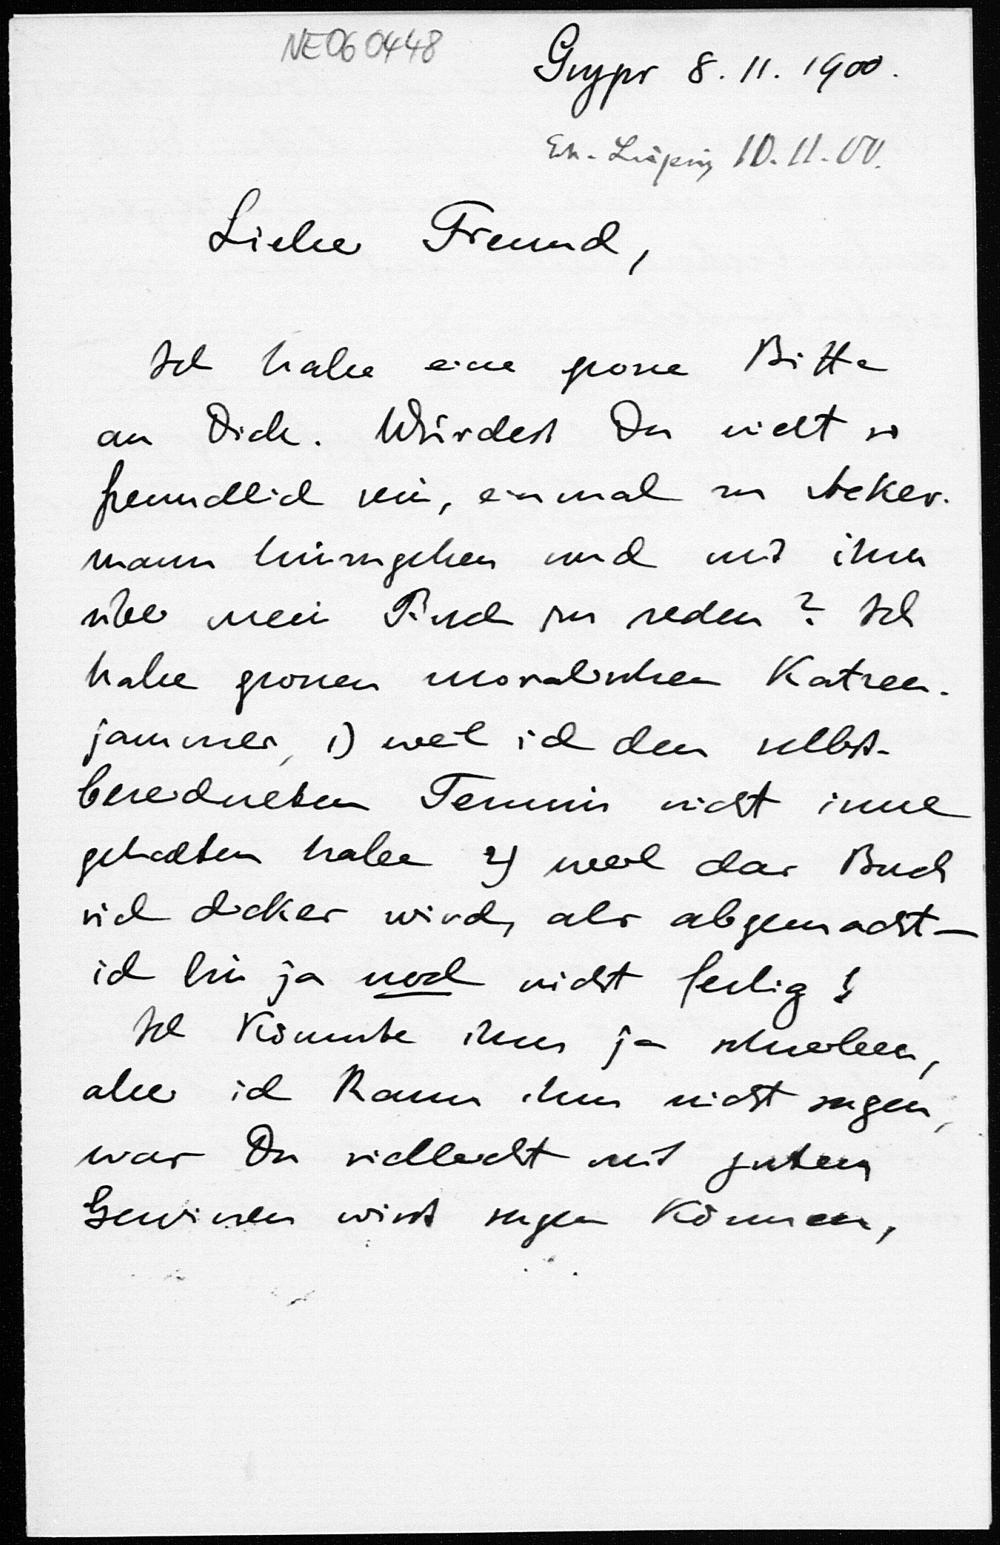 NE060448
Gryps 8. 11. 1900.
Eh. Leipzig 10.11.00.
Lieber Freund,
Ich habe eine grosse Bitte
an Dich. Würdest Du nicht so
freundlich sein, einmal zu Acker-
mann hinzugehen und mit ihm
über mein Buch zu reden? Ich
habe grossen moralischen Katzen-
jammer, 1) weil ich den selbst-
berechneten Termin nicht inne
gehalten habe 2) weil das Buch
viel dicker wird, als abgemacht –
ich bin ja noch nicht fertig!
Ich könnte ihm ja schreiben,
aber ich kann ihm nicht sagen,
was Du vielleicht mit gutem
Gewissen wirst sagen können,